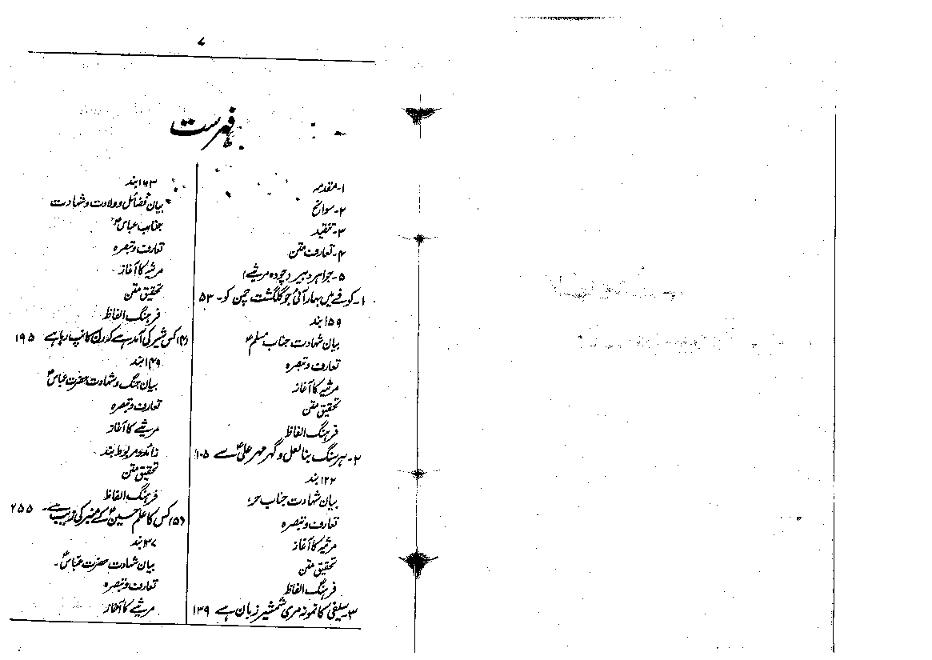 ۷
فہرست
۱۔ مقدمہ
۲۔ سوانح
۳۔ تنقید
۴۔ تعارف متن
۵۔ جواہر دبیر (چودہ مرثیے)
۱۔ کوفے میں بہار آئی جو گلگشت چمن کو۔ ۵۳
۱۵۹ بند
بیان شہادت جناب مسلمؑ
تعارف و تبصرہ
مرثیہ کا آغاز
تحقیق متن
فرہنگ الفاظ
۲۔ ہر سنگ بنا لعل و گہر مہر علیؑ سے ۱۰۵
۱۲۲ بند
بیان شہادت جناب حرؑ
تعارف و تبصرہ
مرثیہ کا آغاز
تحقیق متن
فرہنگ الفاظ
۳۔ سیفی کا نمونہ مری شمشیر زبان ہے ۱۳۹
۱۶۳ بند
بیان فضائل و ولادت و شہادت
جناب عباسؑ
تعارف و تبصرہ
مرثیہ کا آغاز
تحقیق متن
فرہنگ الفاظ
(۴) کس شیر کی آمد ہے کہ رن کانپ رہا ہے ۱۹۵
۱۴۹ بند
بیان جنگ و شہادت حضرت عباسؑ
تعارف و تبصرہ
مرثیے کا آغاز
زائد و مربوط بند
تحقیق متن
فرہنگ الفاظ
(۵) کس کا علم حسینؑ کے منبر کی زیب ہے۔ ۲۵۵
۳۷ بند
بیان شہادت حضرت عباسؑ۔
تعارف و تبصرہ
مرثیے کا آغاز